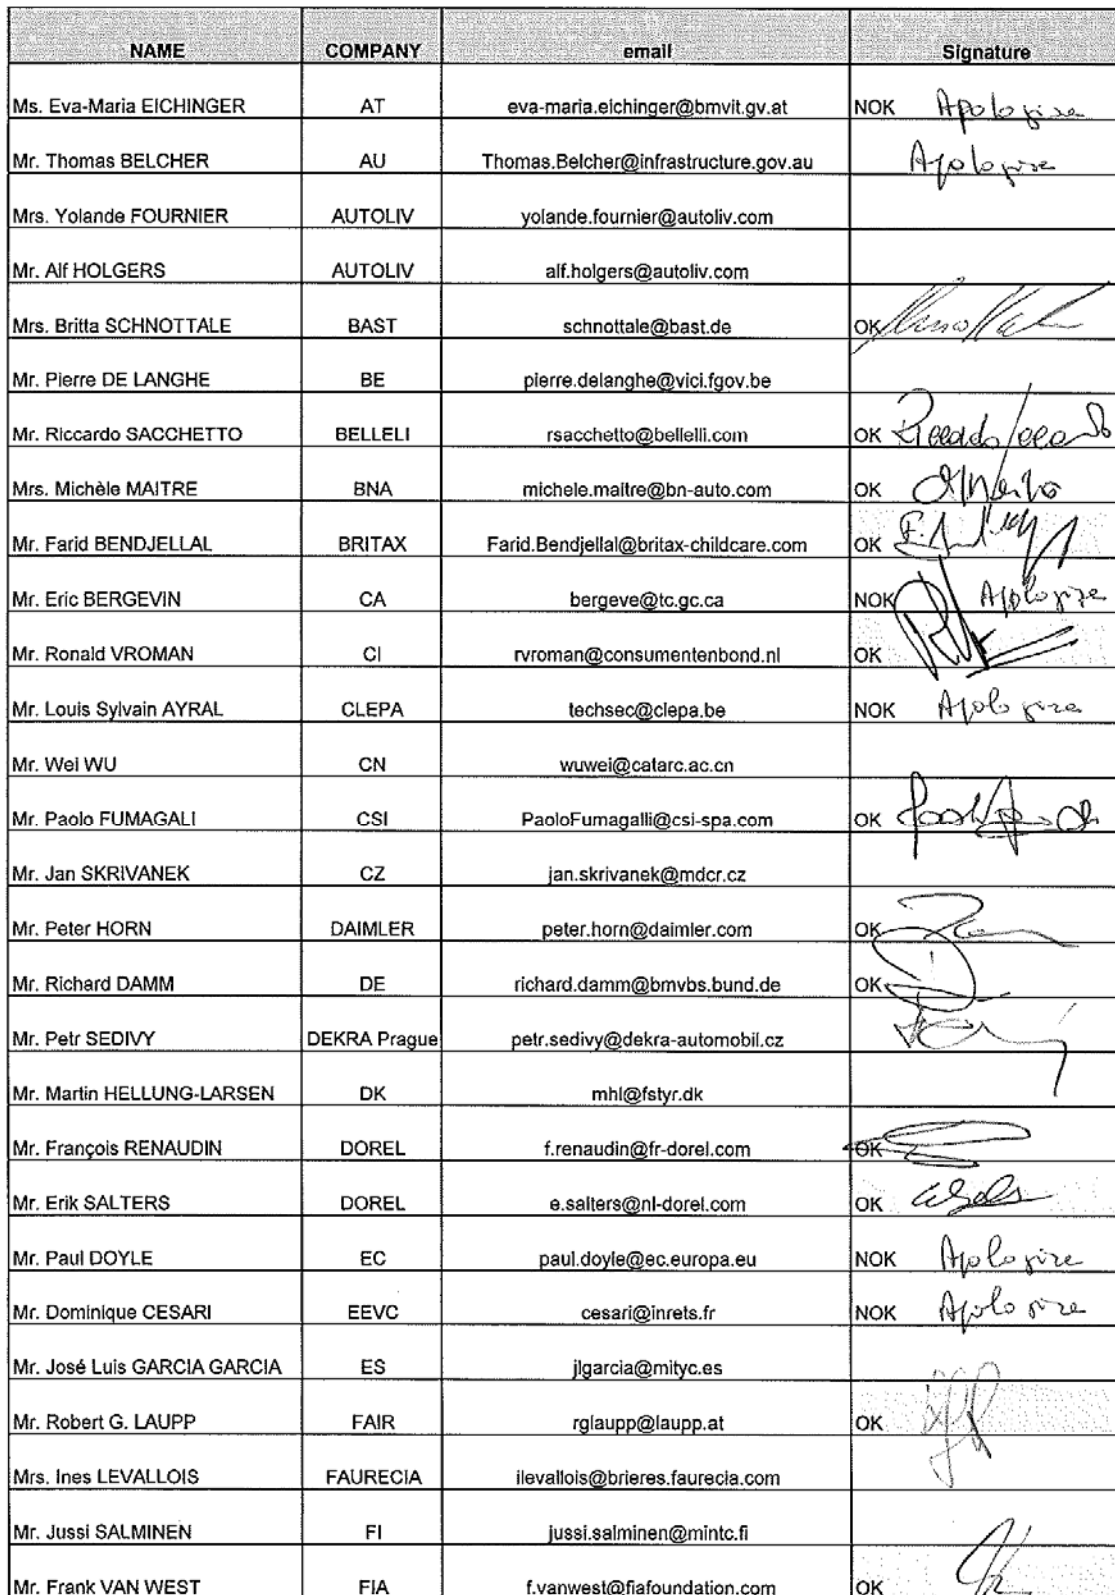 NAME COMPANY email Signature
Ms. Eva-Maria EICHINGER AT eva-maria.eichinger@bmvit.gv.at NOK Apologize
Mr. Thomas BELCHER AU Thomas.Belcher@infrastructure.gov.au Apologize
Mrs. Yolande FOURNIER AUTOLIV yolande.fournier@autoliv.com
Mr. Alf HOLGERS AUTOLIV alf.holgers@autoliv.com
Mrs. Britta SCHNOTTALE BAST schnottale@bast.de OK
Mr. Pierre DE LANGHE BE pierre.delanghe@vici.fgov.be
Mr. Riccardo SACCHETTO BELLELI rsacchetto@bellelli.com OK
Mrs. Michèle MAITRE BNA michele.maitre@bn-auto.com OK
Mr. Farid BENDJELLAL BRITAX Farid.Bendjellal@britax-childcare.com OK
Mr. Eric BERGEVIN CA bergeve@tc.gc.ca NOK Apologize
Mr. Ronald VROMAN CI rvroman@consumentenbond.nl OK
Mr. Louis Sylvain AYRAL CLEPA techsec@clepa.be NOK Apologize
Mr. Wei WU CN wuwei@catarc.ac.cn
Mr. Paolo FUMAGALI CSI PaoloFumagalli@csi-spa.com OK
Mr. Jan SKRIVANEK CZ jan.skrivanek@mdcr.cz
Mr. Peter HORN DAIMLER peter.horn@daimler.com OK
Mr. Richard DAMM DE richard.damm@bmvbs.bund.de OK
Mr. Petr SEDIVY DEKRA Prague petr.sedivy@dekra-automobil.cz
Mr. Martin HELLUNG-LARSEN DK mhl@fstyr.dk
Mr. François RENAUDIN DOREL f.renaudin@fr-dorel.com OK
Mr. Erik SALTERS DOREL e.salters@nl-dorel.com OK
Mr. Paul DOYLE EC paul.doyle@ec.europa.eu NOK Apologize
Mr. Dominique CESARI EEVC cesari@inrets.fr NOK Apologize
Mr. José Luis GARCIA GARCIA ES jlgarcia@mityc.es
Mr. Robert G. LAUPP FAIR rglaupp@laupp.at OK
Mrs. Ines LEVALLOIS FAURECIA ilevallois@brieres.faurecia.com
Mr. Jussi SALMINEN FI jussi.salminen@mintc.fi
Mr. Frank VAN WEST FIA f.vanwest@fiafoundation.com OK